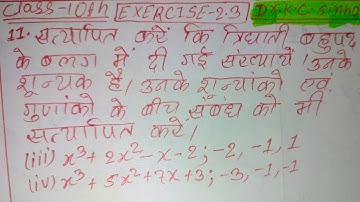 Class-10th EXERCISE-2.3 Dr.K.C.Sinha
11. सत्यापित करें कि त्रिघाती बहुपद
के बगल में दी गई संख्यायें उनके
शून्यक है। उनके शून्यांको एवं
गुणांको के बीच संबंध को भी
सत्यापित करें।
(iii) x³+2x²-x-2; -2, -1, 1
(iv) x³+5x²+7x+3; -3, -1, -1